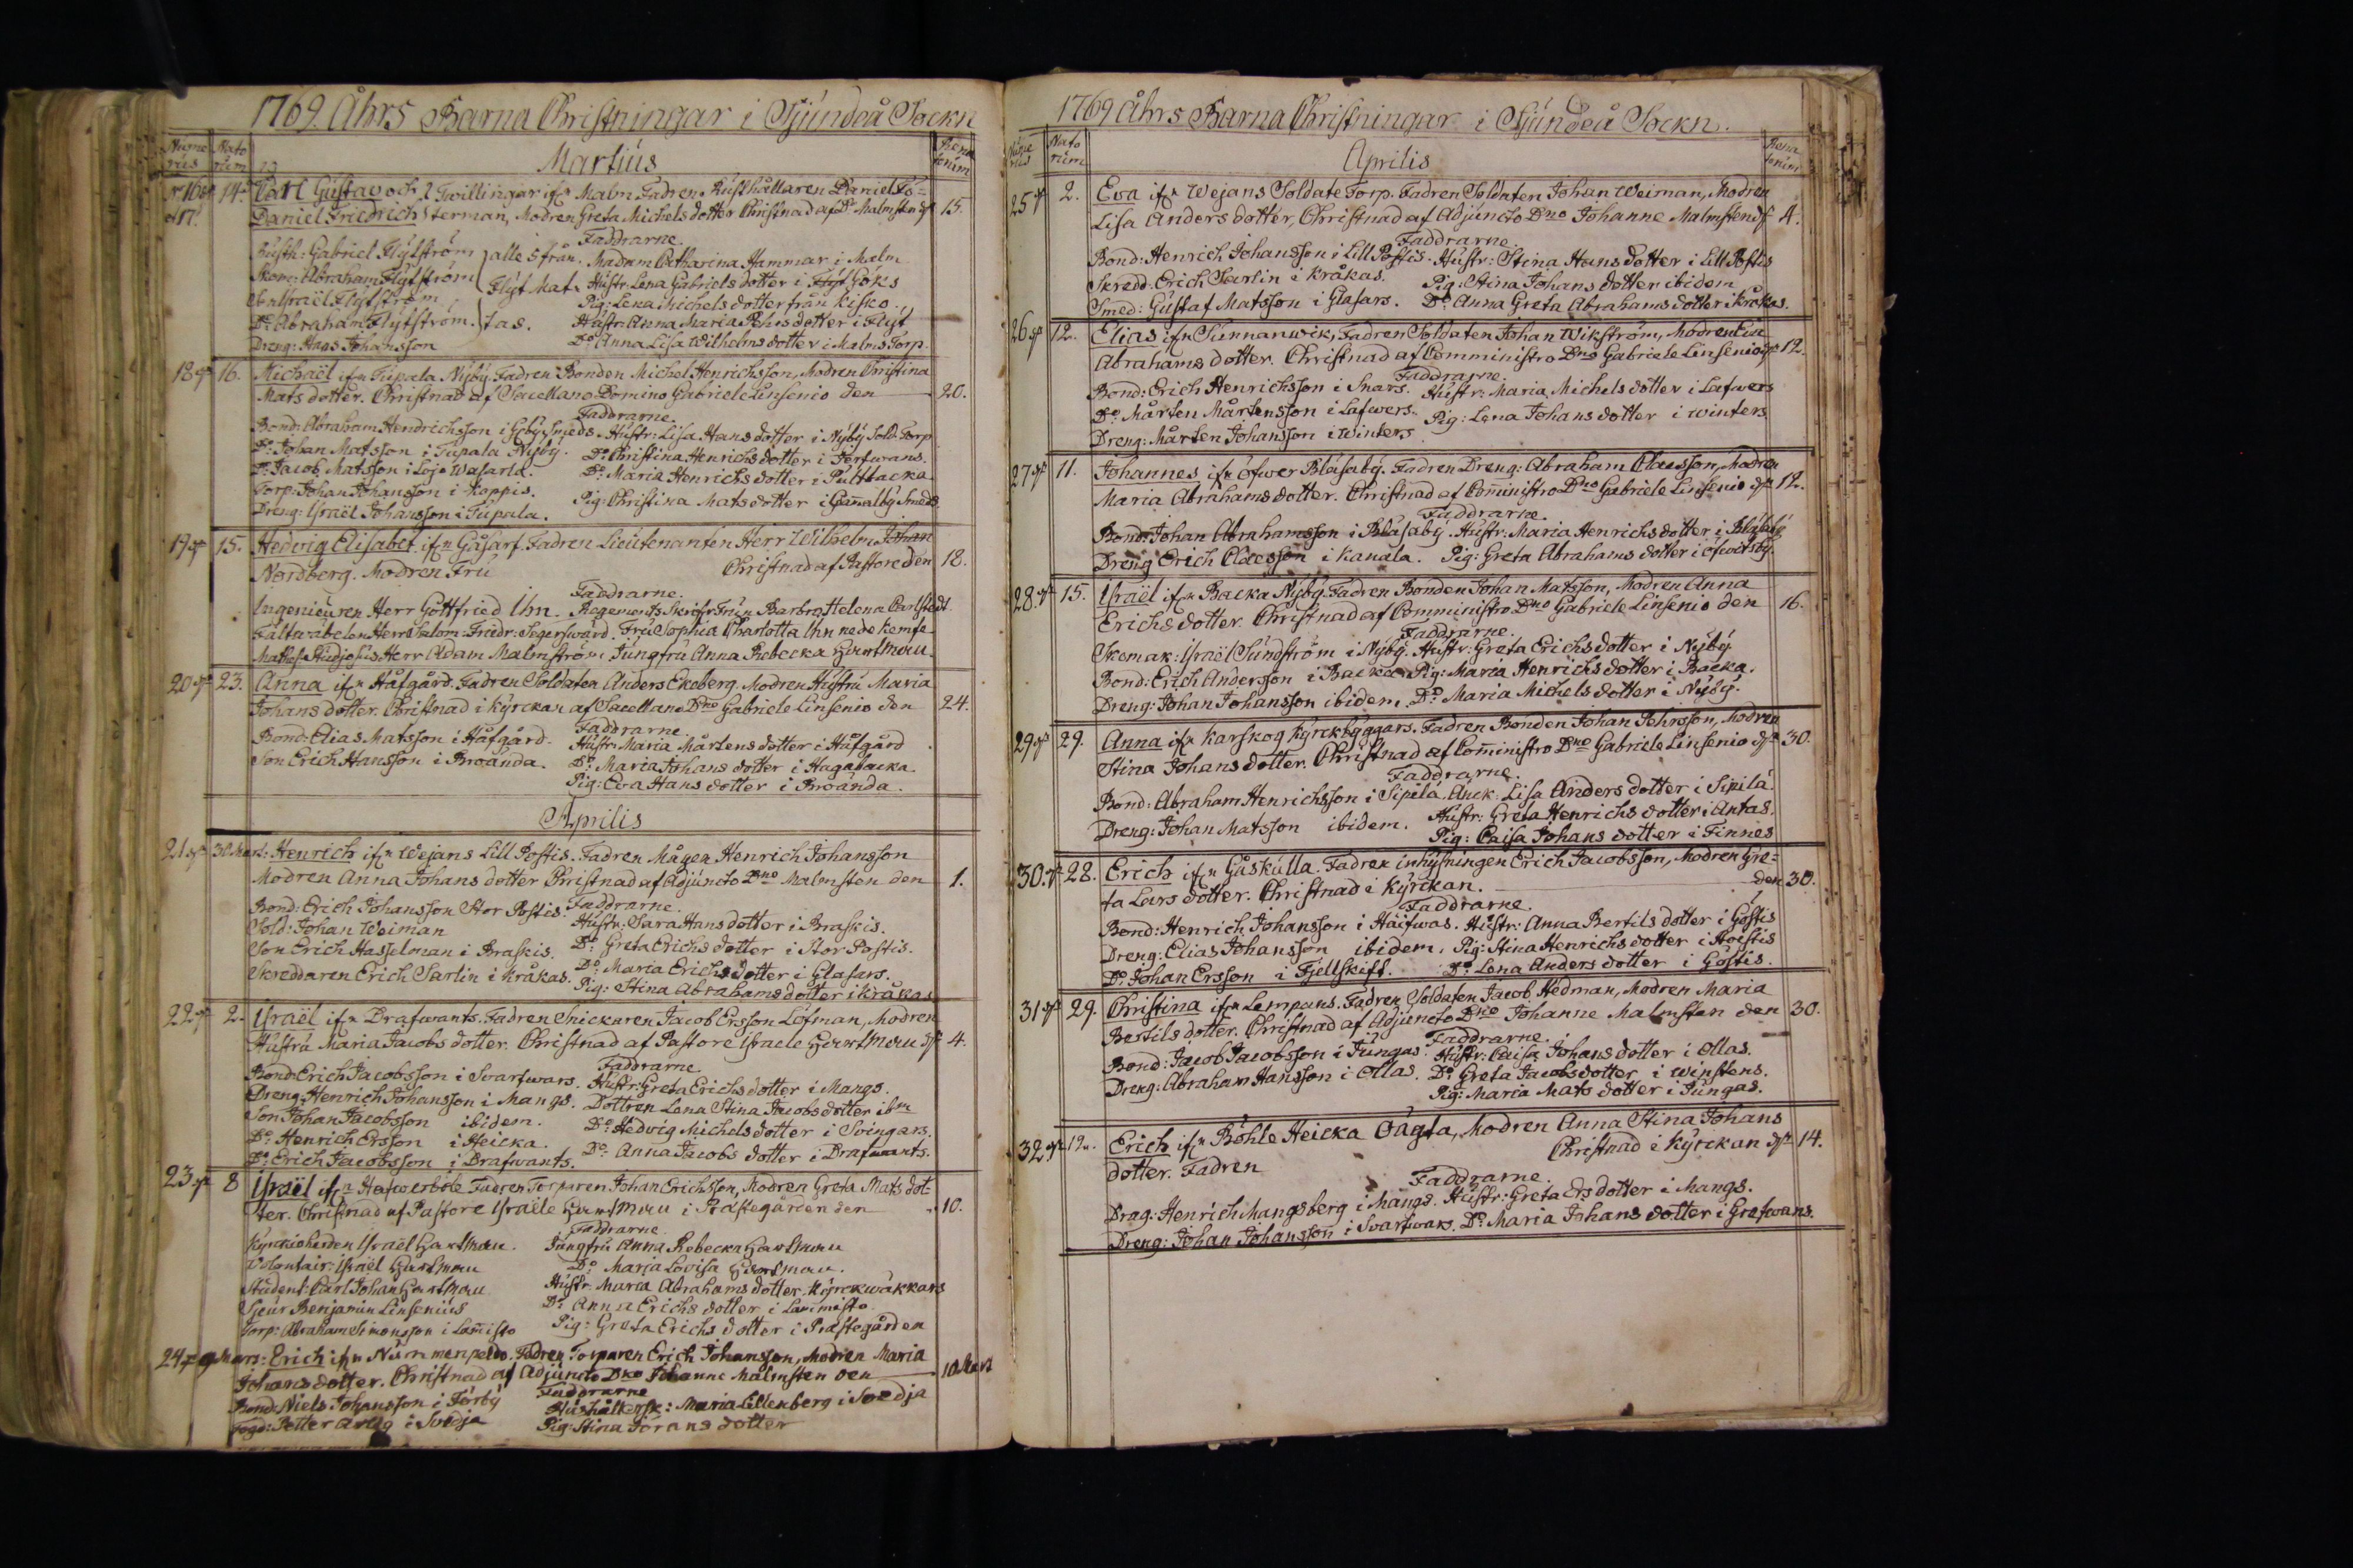 1769. Åhrs Barna Christningar i Sjundeå Sockn
Nume rus Nato rum Martius Rena torum
16 et 17. 14. Carl Gustav och Tvillingar ifrn Malm. Fadren Rusthållaren Daniel To=
Daniel Friedrich terman, Modren Greta Michels dotter Christnad af Dno Malmsten 15.
Faddrarne.
Rusth: Gabriel Flytström alle 5 från Madam Catharina Hammar i Malm
Skom: Abraham Flytström Flyt Mat- Hustr. Lena Gabriels dotter i Göks
Son Israël Flytström Pig: Lena Michels dotter från Kisko.
Do Abraham Flytström. tas. Hustr: Anna Maria dotter i Flyt
Dreng: Hans Johansson Do Anna Lisa Wilhelms dotter i Malms Torp.
18 16. Michaël ifrn Tupala Nyby. Fadren Bonden Michel Henrichsson, Modren Christina
Mats dotter. Christnad af Sacellano Domino Gabriele Linsenio den 20.
Faddrarne.
Bond: Abraham Hendrichsson i Smeds. Hustr: Lisa Hans dotter i Nyby Sold. Torp
Do: Johan Matsson i Tupala Nyby. Do Christina Henrichs dotter i
Do: Jacob Matsson i Lojo Wasarla. Do: Maria Henrichs dotter i
Torp: Johan Johansson i Koppis. Pig: Christina Mats dotter i Gammalby Smeds
Dreng: Israël Johansson i Tupala.
19 15. Hedvig Elisabet ifrn Gåsarf. Fadren Lieutenanten Herr Wilhelm Johan
Nordberg. Modren Fru Christnad af Pastore den 18.
Faddrarne.
Ingenieuren Herr Gottfried Ihn. Regements Skrifv. Frun Barbra Helena Carlstedt
Herr Salom: Friedr: Segersward. Fru Sophia Charlotta Ihn nede Kemfe
Studiosus Herr Adam Malmström Jungfru Anna Rebecka Hartman
20 23. Anna ifrn Håfgård. Fadren Soldaten Anders Ekeberg. Modren Hustru Maria
Johans dotter. Christnad i kyrckan af Sacellano Dno Gabriele Linsenio den 24.
Faddrarne
Bond: Elias Matsson i Håfgård. Hustr: Maria Mårtens dotter i Håfgård
Son Erich Hansson i Broända. Do: Maria Johans dotter i Hagabacka.
Pig: Eva Hans dotter i Broända.
Aprilis
21 30 Mart: Henrich ifrn Wejans Lill Postis. Fadren Mågen Henrich Johansson
Modren Anna Johans dotter Christnad af Adjuncto Dno Malmsten den 1.
Faddrarne.
Bond: Erich Johansson Stor Postis. Hustr: Sara Hans dotter i Braskis.
Sold: Johan Weiman Do: Greta Erichs dotter i Stor Postis.
Son Erich Hasselman i Braskis. Do: Maria Erichs dotter i Glasars.
Skreddaren Erich Sarlin i Kråkas. Pig: Stina Abrahams dotter i Kråkas
22 2. Israël ifrn Drafwants. Fadren Snickaren Jacob Ersson Löfman, Modren
Hustru Maria Jacobs dotter. Christnad af Pastore Israele Hartman 4.
Faddrarne
Bond: Erich Jacobsson i Svartwars. Hustr: Greta Erichs dotter i Mangs.
Dreng: Henrich Johansson i Mangs. Dottren Lena Stina Jacobs dotter ibm
Son Johan Jacobsson ibidem. Do: Hedvig Michels dotter i Svingars.
Do: Henrich Ersson i Heicka. Do: Anna Jacobs dotter i Drafwants.
Do: Erich Jacobsson i Drafwants.
23 8 Israël ifrn Hafwerböle Fadren Torparen Johan Erichsson, Modren Greta Mats dot-
ter. Christnad af Pastore Israële Hartman i Prästegården den 10.
Faddrarne
Kyrckioherden Israël Hartman. Jungfru Anna Rebecka Hartman
Volontair: Israël Hartman Do Maria Lovisa Hartman.
Student: Carl Johan Hartman Hustr. Maria Abrahams dotter. Kyrckwäkkars
Sieur Benjamin Linsenius Do Anna Erichs dotter i Lammisto
Torp: Abraham Simonsson i Lammisto Pig: Greta Erichs dotter i Prästegården
24 9 Mars: Erich ifrn Nurmenpeldo. Fadren Torparen Erich Johansson, Modren Maria
Johans dotter. Christnad af Adjuncto Dno Johanne Malmsten den 10 Mart
Faddrarne
Bond: Niels Johansson i Törby Hushållersk: Maria Lillenberg i Svedja
Fogd: Petter i Svedja Pig: Stina Jörans dotter
1769 Åhrs Barna Christningar i Sjundeå Sockn.
Nume rus Nato rum Aprilis Rena torum
25 2. Eva ifrn Wejans Soldate Torp. Fadren Soldaten Johan Weiman, Modren
Lisa Anders dotter, Christnad af Adjuncto Dno Johanne Malmsten 4.
Faddrarne.
Bond: Henrich Johansson i Lill Postis. Hustr: Stina Hans dotter i Lill Postis
Skredd: Erich Sarlin i Kråkas. Pig: Stina Johans dotter ibidem
Smed: Gustaf Matsson i Glasars. Do Anna Greta Abrahams dotter i Kråkas.
26 12. Elias ifrn Sunnanwik, Fadren Soldaten Johan Wikström, Modren Eva
Abrahams dotter. Christnad af Comministro Dno Gabriele Linsenio 12.
Faddrarne.
Bond: Erich Henrichsson i Snars. Hustr: Maria Michels dotter i Lafwers
Do: Mårten Mårtensson i Lafwers. Pig: Lena Johans dotter i Winters
Dreng: Mårten Johansson i Winters
27 11. Johannes ifrn Öfwer Blåsaby. Fadren Dreng: Abraham Claesson, Modren
Maria Abrahams dotter. Christnad af Comministro Dno Gabriele Linsenio 12.
Faddrarne.
Bond: Johan Abrahamsson i Blåsaby. Hustr: Maria Henrichs dotter i Blåsaby
Dreng Erich Claesson i Kanala. Pig: Greta Abrahams dotter i Öfwitsby.
28. 15. Israël ifrn Backa Nyby. Fadren Bonden Johan Matsson, Modren Anna
Erichs dotter. Christnad af Comministro Dno Gabriele Linsenio den 16.
Faddrarne.
Skomak: Israël Sundström i Nyby. Hustr: Greta Erichs dotter i Nyby
Bond: Erich Andersson i Backa. Pig: Maria Henrichs dotter i Backa.
Dreng: Johan Johansson ibidem. Do Maria Michels dotter i Nyby.
29 29. Anna ifrn Karskog Kyrckbyggars. Fadren Bonden Johan Johrsson, Modren
Stina Johans dotter. Christnad af Comministro Dno Gabriele Linsenio 30.
Faddrarne.
Bond: Abraham Henrichsson i Sipilä. Anck: Lisa Anders dotter i Sipilä.
Dreng: Johan Matsson ibidem. Hustr: Greta Henrichs dotter i Antas.
Pig: Caisa Johans dotter i Finnes
30. 28. Erich ifrn Gåskulla. Fadren inhysningen Erich Jacobsson, Modren Gre=
ta Lars dotter. Christnad i Kyrckan. den 30.
Faddrarne.
Bond: Henrich Johansson i Häifwas. Hustr: Anna Bertils dotter i Göstis
Dreng: Elias Johansson ibidem. Pig: Stina Henrichs dotter i
Do: Johan Ersson i Fjellskift. Do: Lena Anders dotter i Göstis.
31 29. Christina ifrn Lempans. Fadren Soldaten Jacob Hedman, Modren Maria
Bertils dotter. Christnad af Adjuncto Dno Johanne Malmsten den 30.
Faddrarne.
Bond: Jacob Jacobsson i Jungas. Hustr: Caisa Johans dotter i Ollas.
Dreng: Abraham Hansson i Ollas. Do Greta Jacobs dotter i Winstens.
Pig: Maria Mats dotter i Jungas.
32 12. Erich ifrn Böhle Heicka Oägta, Modren Anna Stina Johans
dotter. Fadren Christnad i Kyrckan 14.
Faddrarne.
Drag: Henrich Mangsberg i Mangs. Hustr: Greta Ers dotter i Mangs.
Dreng: Johan Johansson i Svartwars. Do Maria Johans dotter i Grefwans.